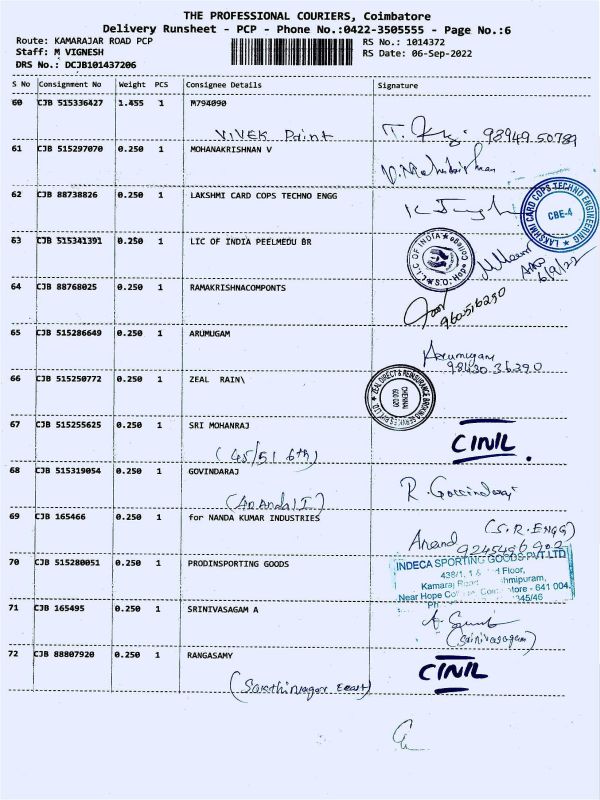 THE PROFESSIONAL COURIERS, Coimbatore
Delivery Runsheet - PCP - Phone No.:0422-3505555 - Page No.:6
Route: KAMARAJAR ROAD PCP
Staff: M VIGNESH
DRS No.: DCJB101437206
RS No.: 1014372
RS Date: 06-Sep-2022
S No Consignment No Weight PCS Consignee Details Signature
60 CJB 515336427 1.455 1 M794090
VIVEK Paint 98949.50789
61 CJB 515297070 0.250 1 MOHANAKRISHNAN V
62 CJB 88738826 0.250 1 LAKSHMI CARD COPS TECHNO ENGG
LAKSHMI CARD COPS TECHNO ENGINEERING
CBE-4
63 CJB 515341391 0.250 1 LIC OF INDIA PEELMEDU BR
L.I.C OF INDIA
6/9/22
64 CJB 88768025 0.250 1 RAMAKRISHNACOMPONTS
65 CJB 515286649 0.250 1 ARUMUGAM
Arumugam
98430 36390
66 CJB 515250772 0.250 1 ZEAL RAIN\
CHENNAI
67 CJB 515255625 0.250 1 SRI MOHANRAJ
CINIL
(45/51 6th)
68 CJB 515319054 0.250 1 GOVINDARAJ
69 CJB 165466 0.250 1 for NANDA KUMAR INDUSTRIES
(S.R. ENGG)
Anand
70 CJB 515280051 0.250 1 PRODINSPORTING GOODS
INDECA SPORTING GOODS PVT.LTD
438/1, 1 & Floor,
Kamaraj Road
Near Hope - 641 004.
345/46
71 CJB 165495 0.250 1 SRINIVASAGAM A
(Srinivasagam)
72 CJB 88807920 0.250 1 RANGASAMY
CINIL